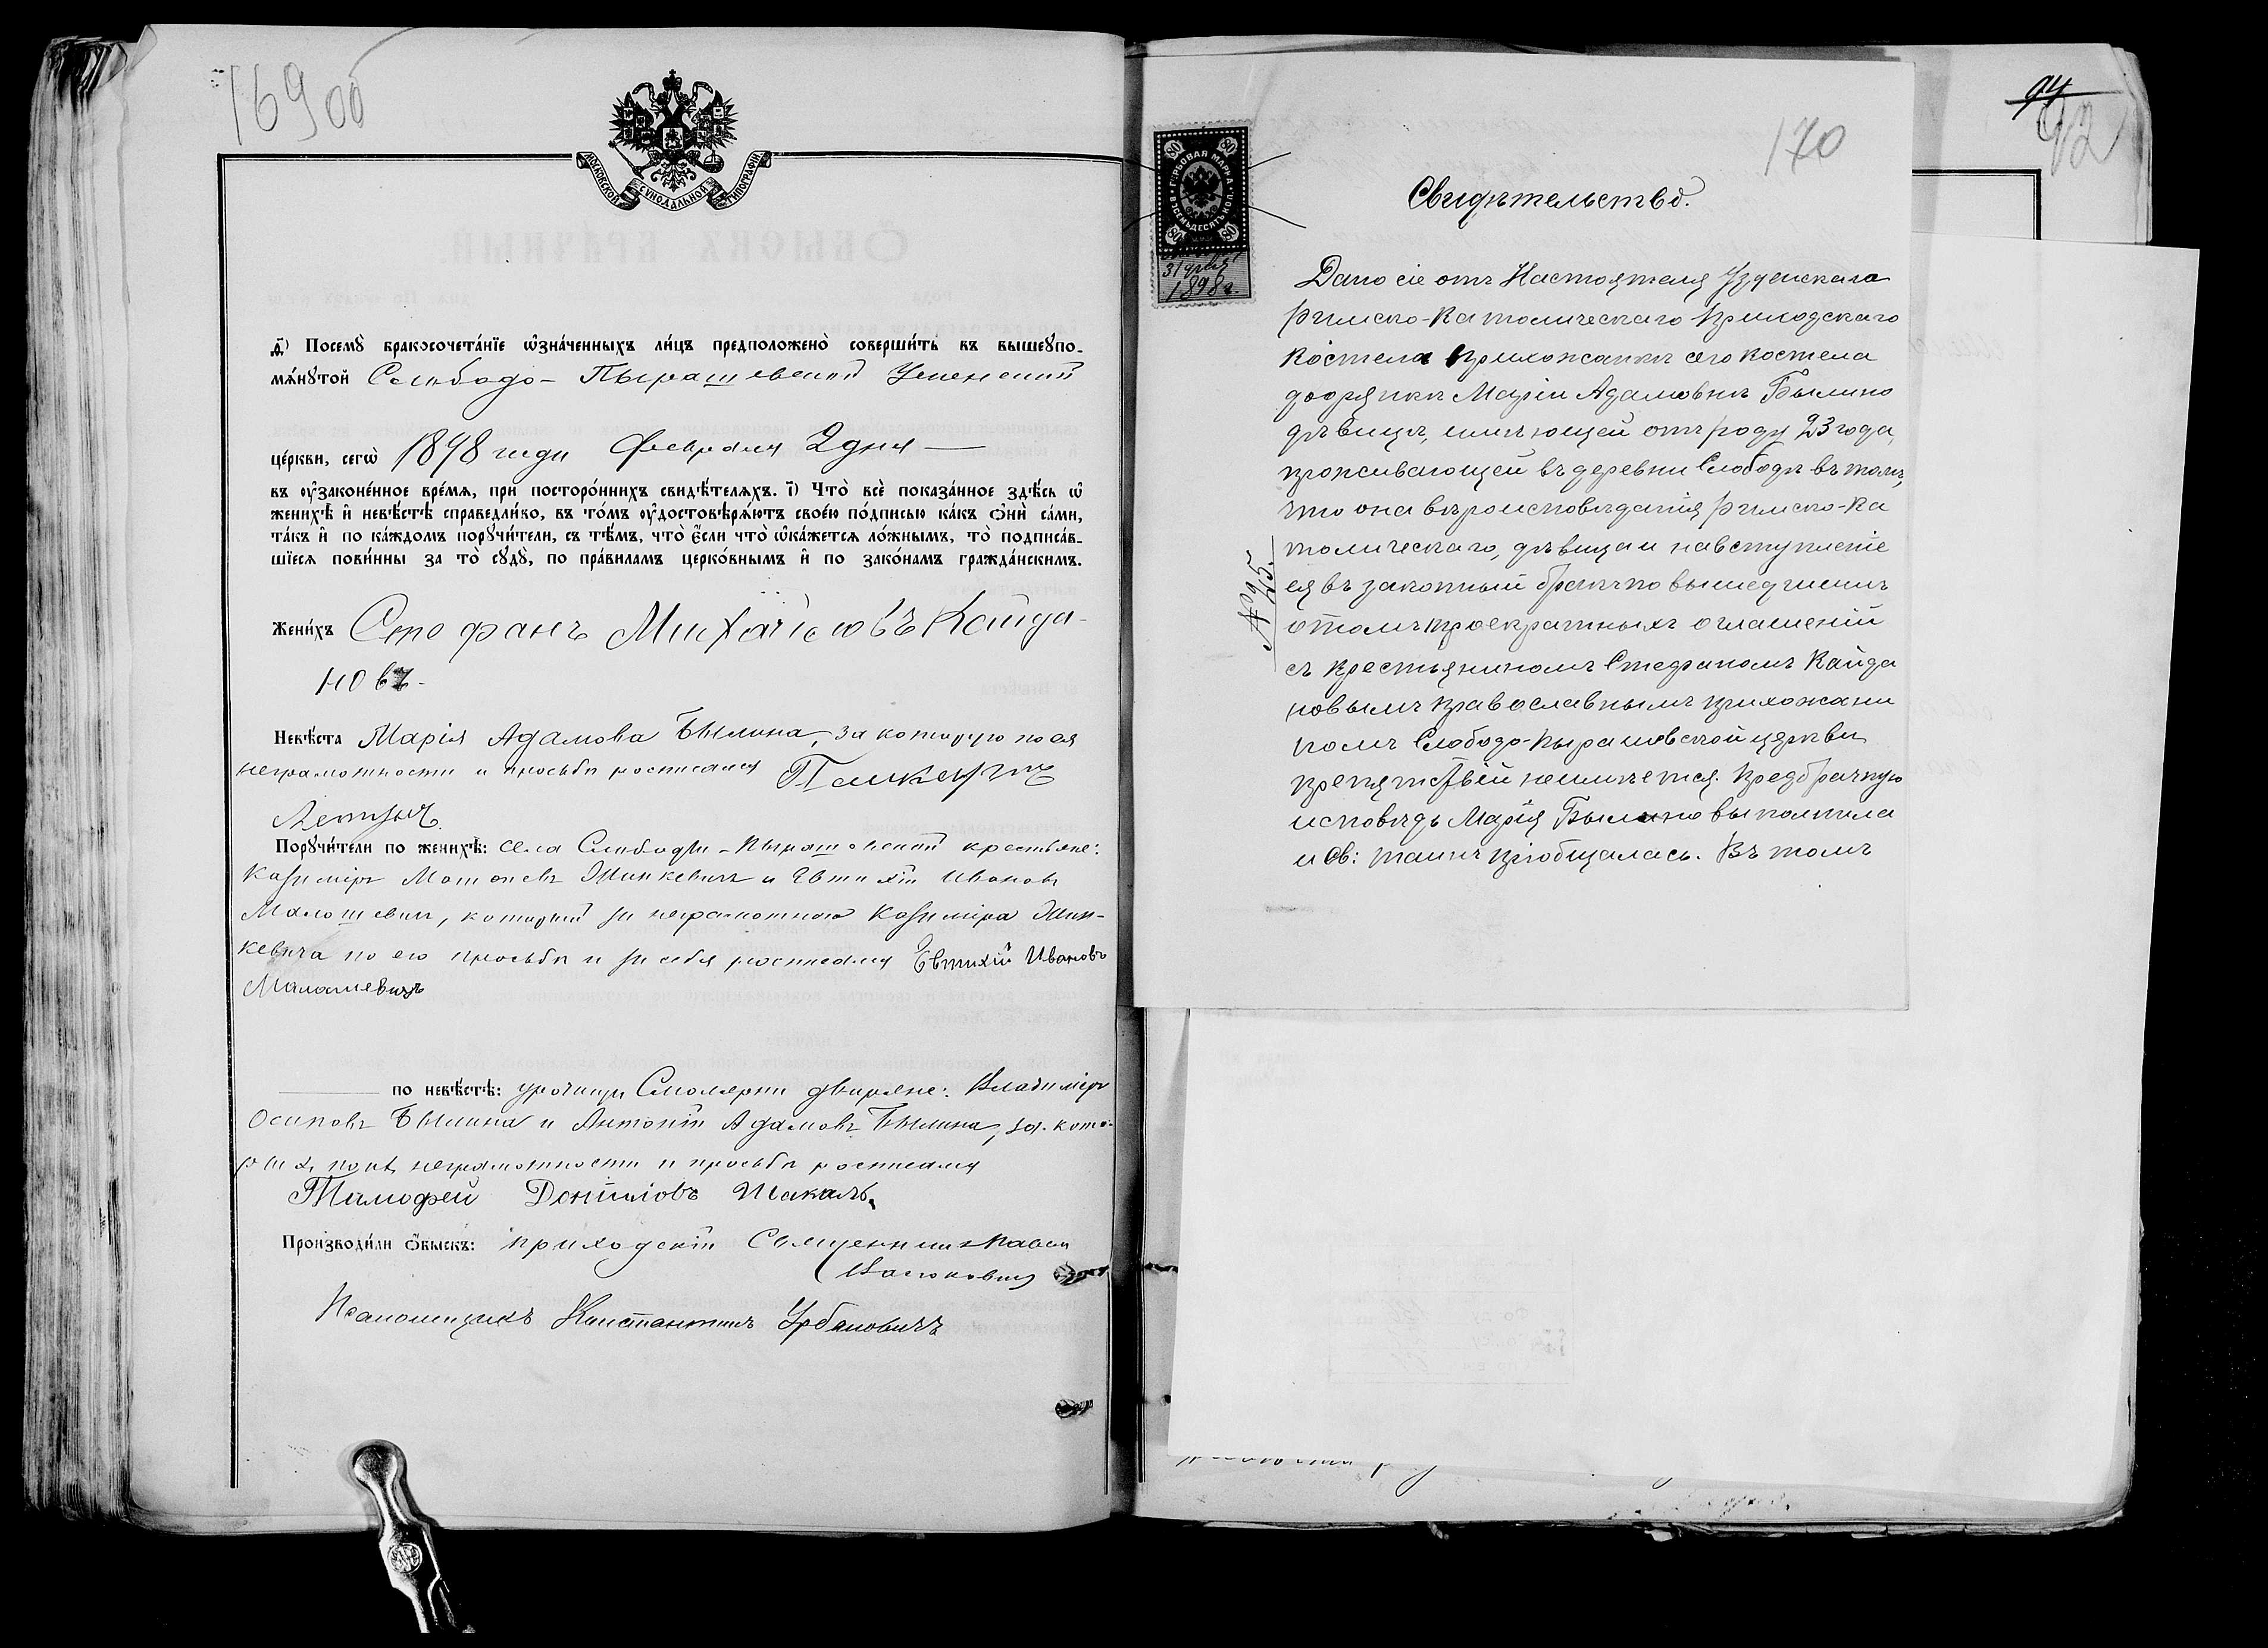 169 об
МОСКОВСКОЙ СѴНОДАЛЬНОЙ ТИПОГРАФІИ.
ѳ҃) Посемꙋ̀ бракосочета́нїе ѡ҆зна́ченныхъ ли́цъ предположено̀ соверши́ть въ вышеꙋпо-
мѧ́нꙋтой Слободо-Пырашевской Успенской
це́ркви, сегѡ̀ 1898 года Февраля 2 дня
въ ᲂу҆законе́нное вре́мѧ, при посторо́ннихъ свидѣ́телѧхъ. і҃) Что̀ всѐ показа́нное здѣ́сь ѡ҆
женихѣ̀ и҆ невѣ́стѣ справедли́во, въ то́мъ ᲂу҆достовѣрѧ́ютъ свое́ю по́дписью ка́къ ѻ҆нѝ са́ми,
та́къ и҆ по ка́ждомъ порꙋчи́тели, съ тѣ́мъ, что̀ є҆́сли что̀ ѡ҆ка́жетсѧ ло́жнымъ, то̀ подписа́в-
шїесѧ пови́нны за то̀ сꙋдꙋ̀, по пра́виламъ церко́внымъ и҆ по зако́намъ гражда́нскимъ.
Жени́хъ Стефанъ Михайловъ Кайда-
новъ.
Невѣ́ста Марія Адамова Былина, за которую по ея
неграмотности и просьбѣ росписался
Петръ
Порꙋчи́тели по женихѣ̀: села Слободы-Пырашевской крестьяне:
Казиміръ Матѳеевъ Минкевичъ и Евтихій Ивановъ
Малашевичъ, который за неграмотнаго Казиміра Мин-
кевича по его просьбѣ и за себя росписался Евтихій Ивановъ
Малашевичъ
по невѣ́стѣ: урочища Смолярни дворяне: Владиміръ
Осиповъ Былина и Антоній Адамовъ Былина, за кото-
рыхъ по ихъ неграмотности и просьбѣ росписался
Тимофей Даниловъ Шакаль.
Произво́дили ѻ҆́быскъ: приходскій Священникъ Павелъ
Псаломщикъ Константинъ Урбановичъ
94
92
170
ГЕРБОВАЯ МАРКА
ВОСЕМЬДЕСЯТЪ КОП.
80 80
80 80
31 Янв.
1898 г.
№ 25.
Свидѣтельство.
Дано сіе отъ Настоятеля Узденскаго
Римско-Католическаго Приходскаго
Костела прихожанкѣ сего костела
дворянкѣ Маріи Адамовнѣ Былино
дѣвицѣ, имѣющей отъ роду 23 года,
проживающей въ деревни Слободѣ въ томъ,
что она вѣроисповѣданія Римско-Ка
толическаго, дѣвица и на вступленіе
ея въ законный бракъ по вышедшимъ
о томъ троекратныхъ оглашеній
съ крестьяниномъ Стефаномъ Кайда
новымъ православнымъ прихожани
номъ Слободо-Пырашевской церкви
препятствій неимѣется. Предбрачную
исповѣдь Марія Былино выполнила
и Св: таинъ пріобщалась. Въ томъ